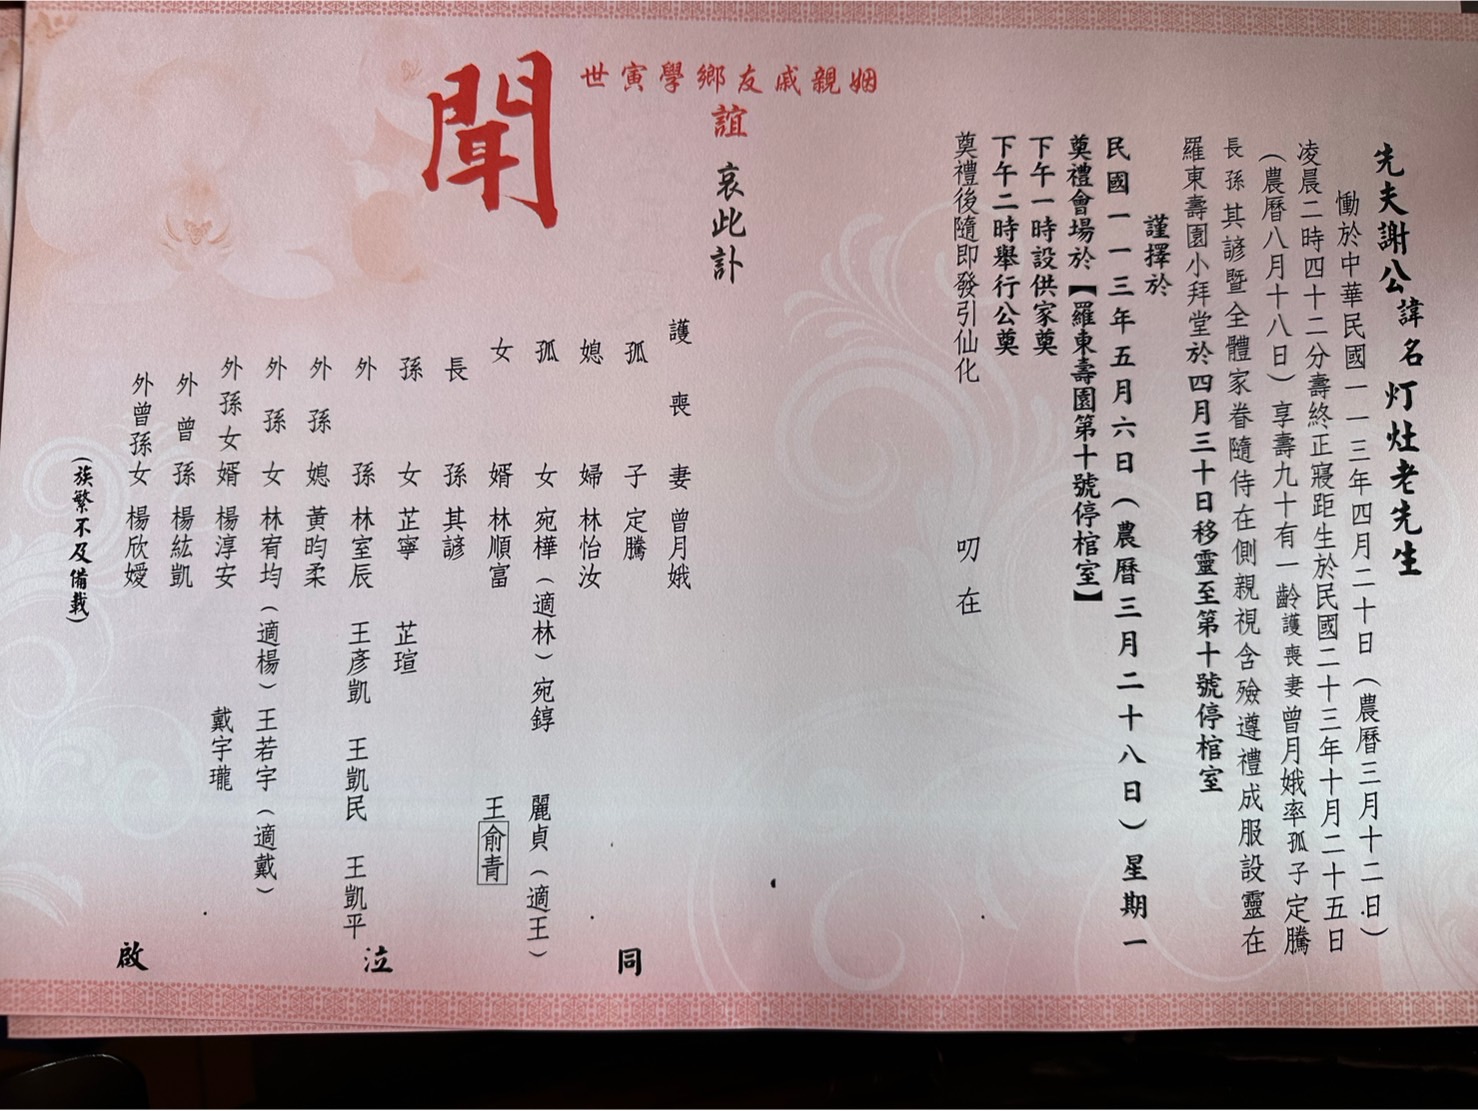 先夫謝公諱名灯灶老先生
慟於中華民國一一三年四月二十日（農曆三月十二日）
凌晨二時四十二分壽終正寢距生於民國二十三年十月二十五日
（農曆八月十八日）享壽九十有一齡護喪妻曾月娥率孤子定騰
長孫其諺暨全體家眷隨侍在側親視含殮遵禮成服設靈在
羅東壽園小拜堂於四月三十日移靈至第十號停棺室
謹擇於
民國一一三年五月六日（農曆三月二十八日）星期一
奠禮會場於【羅東壽園第十號停棺室】
下午一時設供家奠
下午二時舉行公奠
奠禮後隨即發引仙化
叨在
姻親戚友鄉學寅世
誼
哀此訃
聞
護喪妻曾月娥
孤子定騰
媳婦林怡汝
孤女宛樺（適林）宛錞 麗貞（適王）
女婿林順富 王俞青
長孫其諺
孫女芷寧 芷瑄
外孫林室辰 王彥凱 王凱民 王凱平
外孫媳黃昀柔
外孫女林宥均（適楊）王若宇（適戴）
外孫女婿楊淳安 戴宇瓏
外曾孫楊紘凱
外曾孫女楊欣嬡
（族繁不及備載）
同泣啟